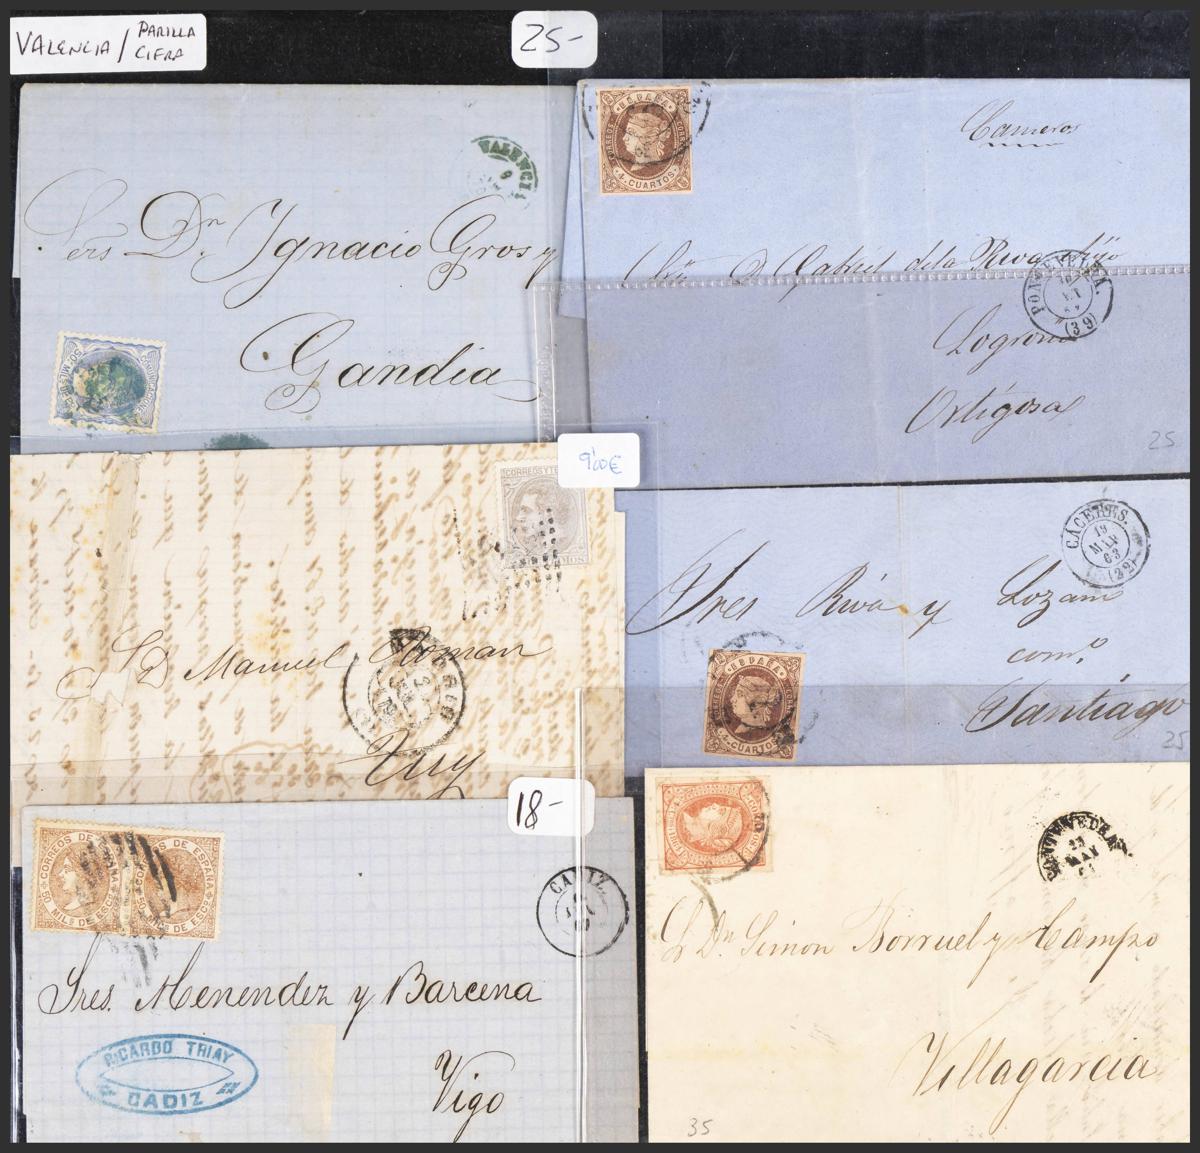 VALENCIA / PARILLA
CIFRA
25-
VALENCIA
9
Sres Dn Ignacio Gros y
Gandia
COMUNICACIONES
50 MILS
ESPAÑA
CORREOS
4 CUARTOS
Cameros
D. Gabriel de la Riva
PONTEVEDRA
(39)
Logroño
Ortigosa
25
9'00€
CORREOS Y TE
D Manuel Roman
Tuy
CACERES.
19
MAR
63
(22)
Sres Riva y Lozano
como
Santiago
ESPAÑA
CORREOS
4 CUARTOS
25
18-
CORREOS DE ESPAÑA
50 MILS DE ESCº
CORREOS DE ESPAÑA
50 MILS DE ESCº
CADIZ
Sres. Menendez y Barcena
Vigo
RICARDO TRIAY
EN
CADIZ
PONTEVEDRA
MAY
Sr Dn Simon Borruel y Campo
Villagarcia
35